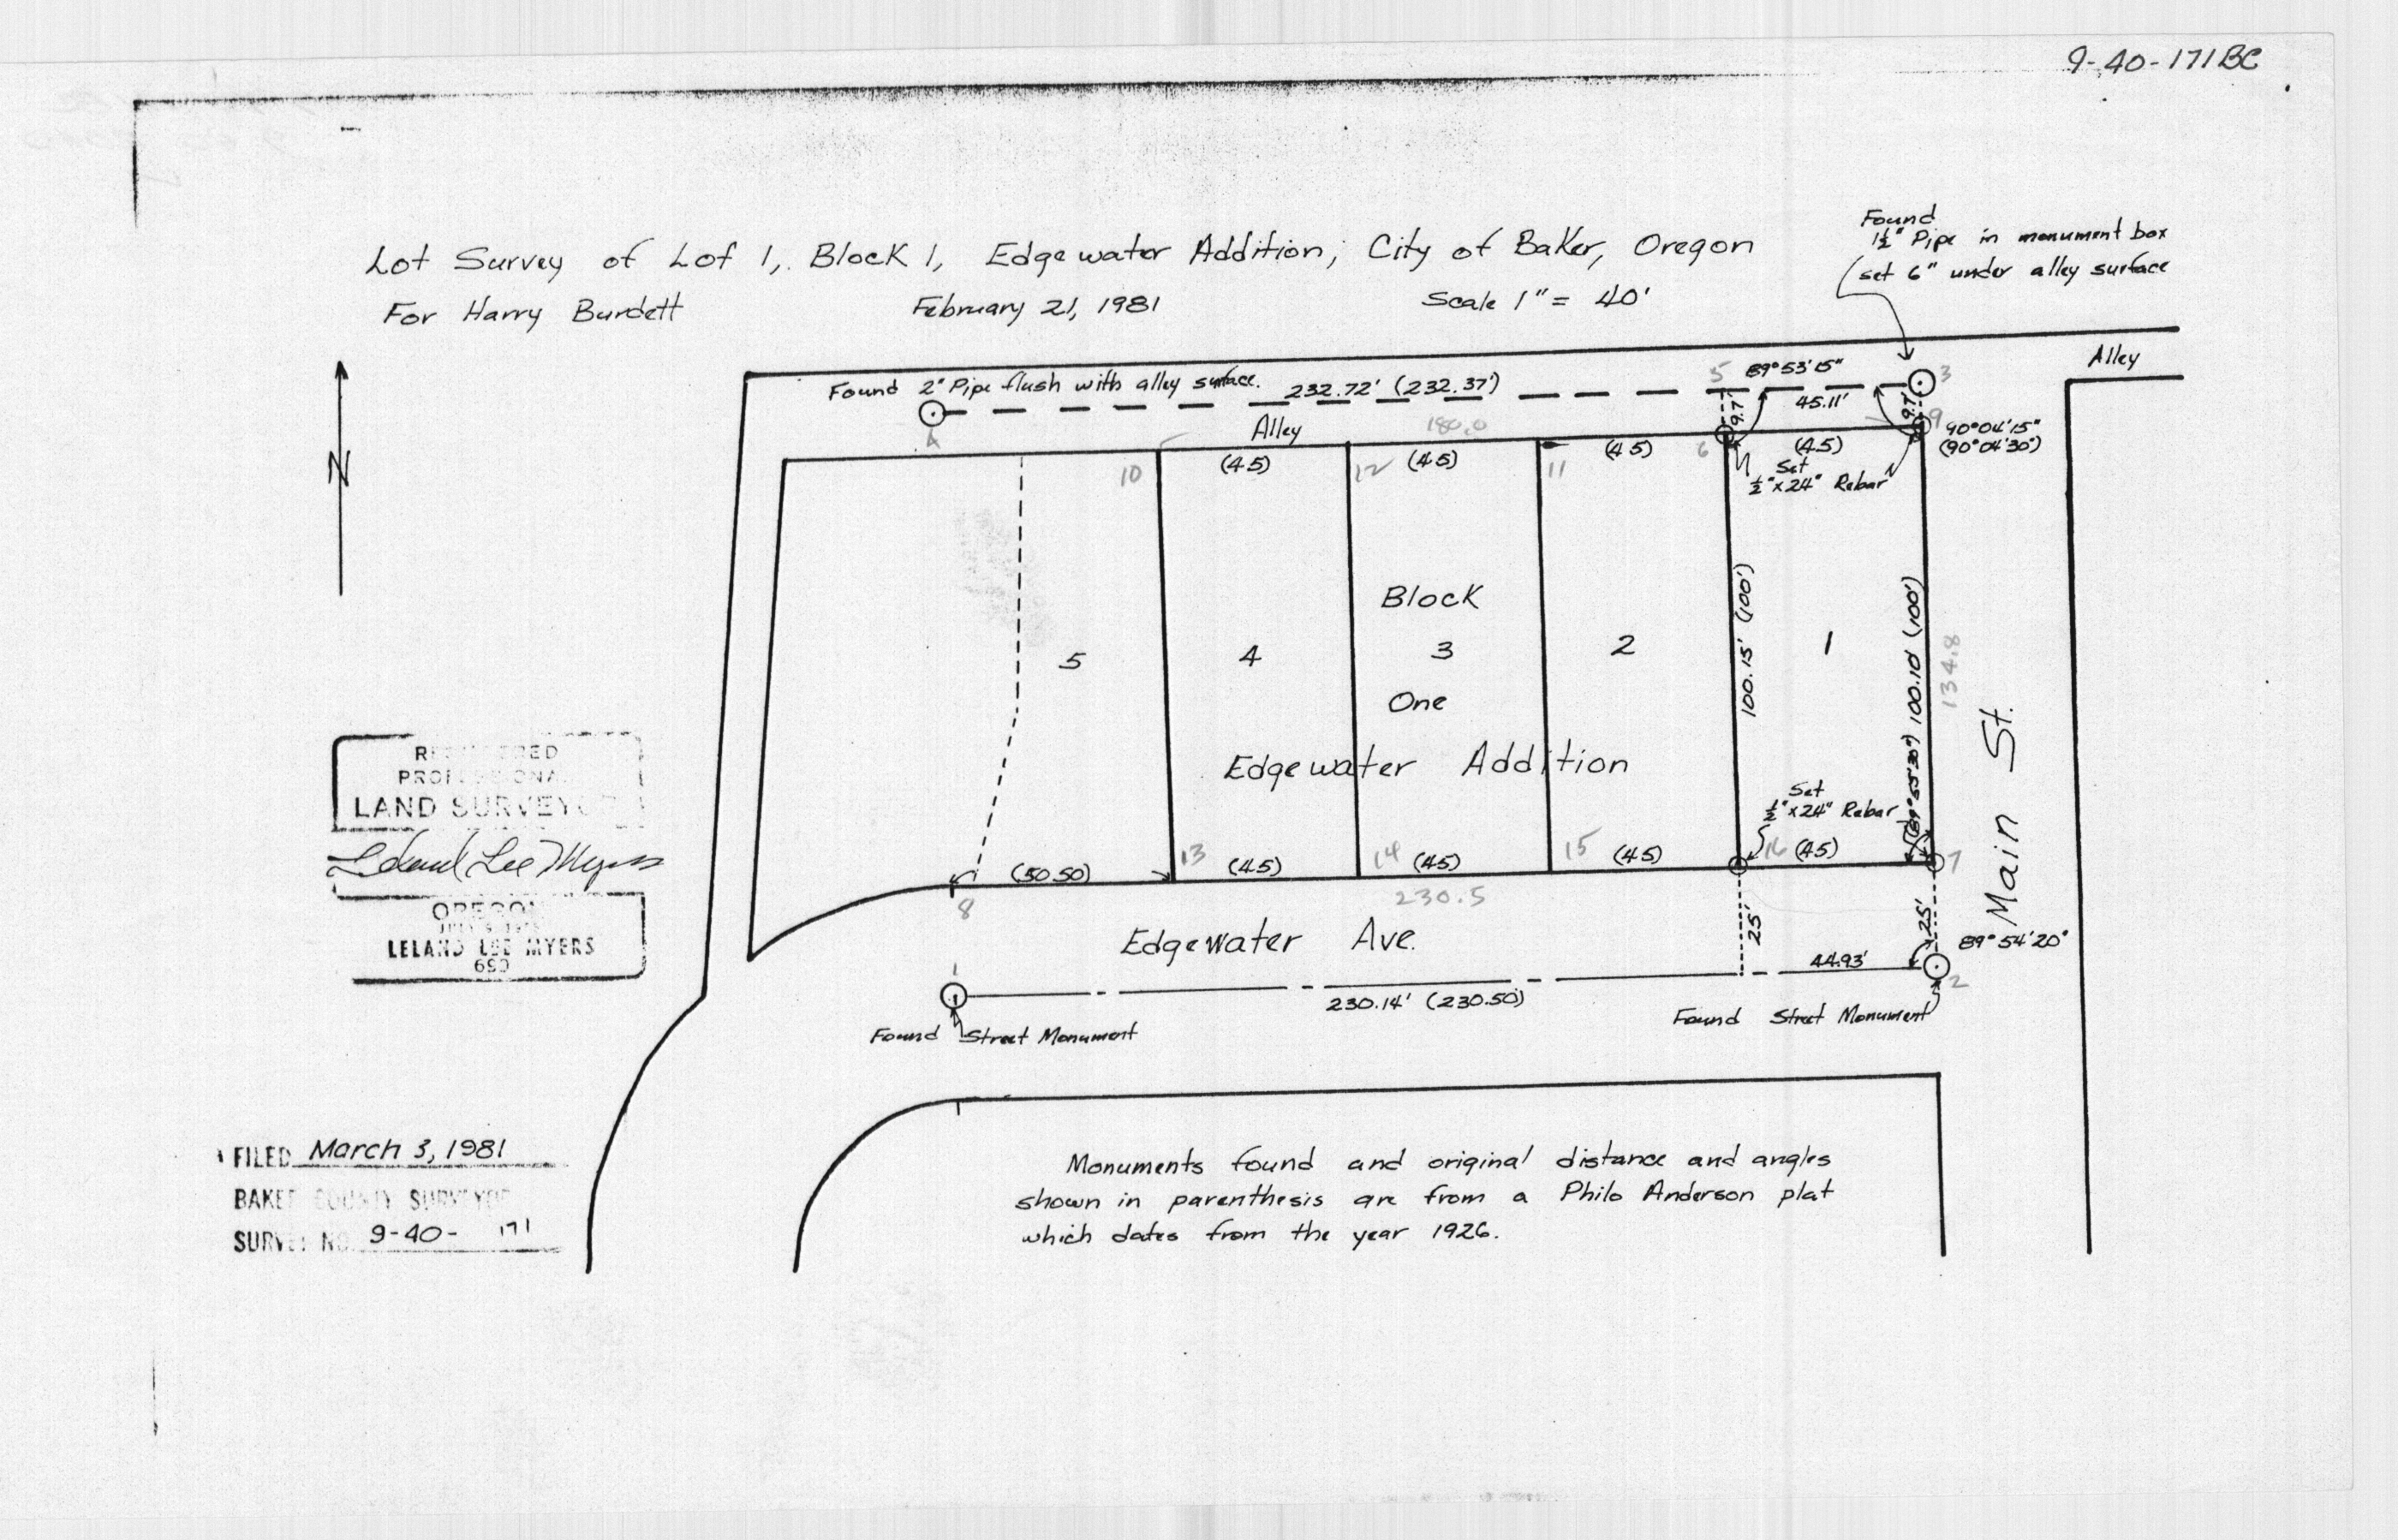 9-40-171BC
Found
1½" Pipe in monument box
set 6" under alley surface
Lot Survey of Lot 1, Block 1, Edgewater Addition; City of Baker, Oregon
For Harry Burdett February 21, 1981 Scale 1" = 40'
Alley
Found 2" Pipe flush with alley surface. 232.72' (232.37')
5 89°53'15" 3
45.11'
4
9.7' 9.7'
Alley 180.0
9 90°04'15"
(90°04'30")
10 (45) 12 (45) 11 (45) 6 (45)
Set
½"x24" Rebar
N
Block
5 4 3 2 1
One
100.15' (100')
(89°55'30") 100.10 (100')
134.8
Edgewater Addition
Main St.
Set
½"x24" Rebar
(50.50) 13 (45) 14 (45) 15 (45) 16 (45) 7
8 230.5
Edgewater Ave.
25' 25'
89°54'20"
1 44.93' 2
230.14' (230.50)
Found Street Monument
Found Street Monument
REGISTERED
PROFESSIONAL
LAND SURVEYOR
Leland Lee Myers
OREGON
LELAND LEE MYERS
650
FILED March 3, 1981
BAKER COUNTY SURVEYOR
SURVEY NO. 9-40-171
Monuments found and original distance and angles
shown in parenthesis are from a Philo Anderson plat
which dates from the year 1926.